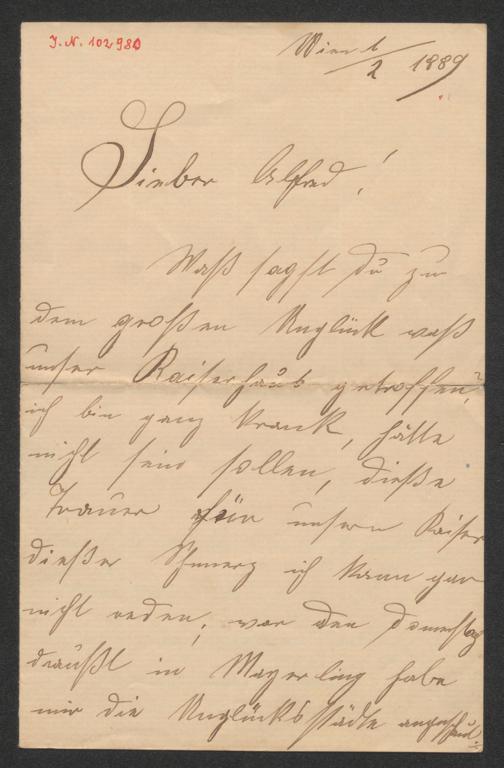 I.N. 102980
Wien 1/2 1889
Lieber Alfred!
Waß sagst du zu
dem großen Unglück waß
unser Kaiserhaus getroffen,?
ich bin ganz krank, hätte
nicht sein sollen, dieße
Trauer für unsern Kaiser
dießer Schmerz ich kann gar
nicht reden, war den Donerstag
draußt in Mayerling habe
mir die Unglücksstädte angeschaut